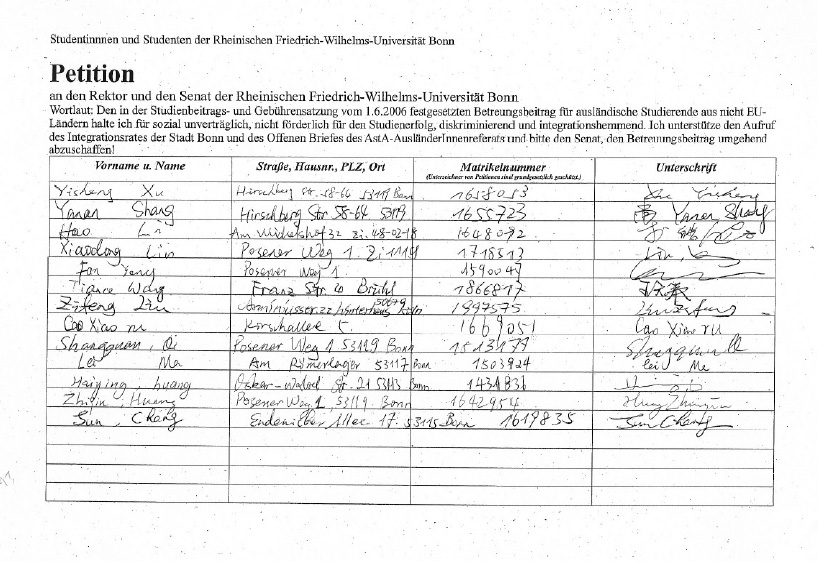 Studentinnnen und Studenten der Rheinischen Friedrich-Wilhelms-Universität Bonn
Petition
an den Rektor und den Senat der Rheinischen Friedrich-Wilhelms-Universität Bonn
Wortlaut: Den in der Studienbeitrags- und Gebührensatzung vom 1.6.2006 festgesetzten Betreuungsbeitrag für ausländische Studierende aus nicht EU-
Ländern halte ich für sozial unverträglich, nicht förderlich für den Studienerfolg, diskriminierend und integrationshemmend. Ich unterstütze den Aufruf
des Integrationsrates der Stadt Bonn und des Offenen Briefes des AStA-AusländerInnenreferats und bitte den Senat, den Betreuungsbeitrag umgehend
abzuschaffen!
Vorname u. Name Straße, Hausnr., PLZ, Ort Matrikelnummer Unterschrift
(Unterzeichner von Petitionen sind grundgesetzlich geschützt.)
Yisheng Xu Hirschberg Str. 58-64 53119 Bonn 1658053 Xu Yisheng
Yanan Shang Hirschberg Str 58-64 53119 1655723 Yanan Shang
Hao Li Am 32 Zi. 48-02-18 1648092
Xiaodong Lin Posener Weg 1. Zi 1119 1718513 Lin
Fan Yang Posener Weg 1. 1590049
Tiance Wang Franz Str. Brühl 1866817
Zifeng Liu 50679 Köln 1997575
Cao Xiao ru 1669051 Cao Xiao ru
Shangguan, Qi Posener Weg 1 53119 Bonn 1513179
Lei Ma Am Römerlager 53117 Bonn 1503924 Lei Ma
Haiying, huang Str. 21 53113 Bonn 1431831
Zhixin, Huang Posener Weg 1, 53119. Bonn 1642954
Sun, Cheng Endenicher Allee 17. 53115 Bonn 1619835 Sun Cheng